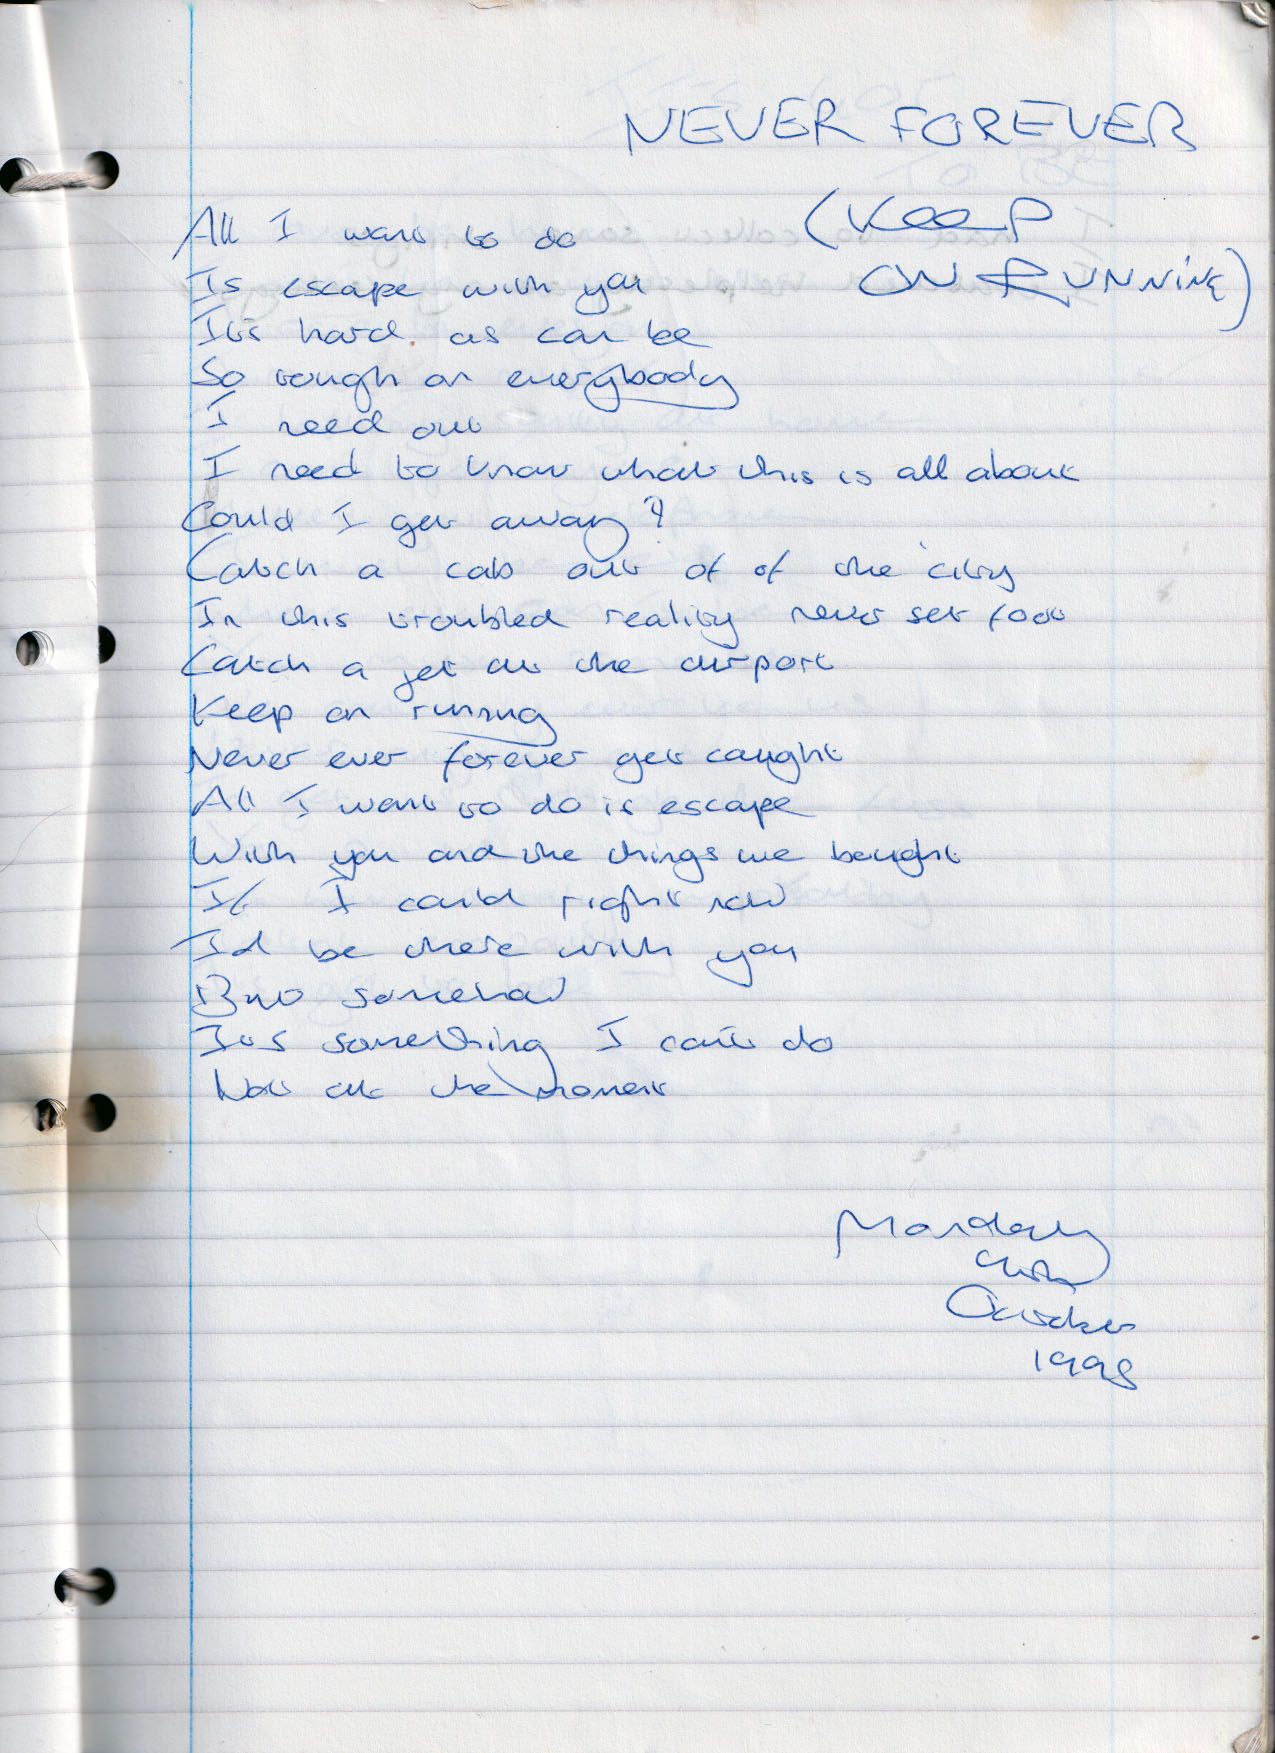 NEVER FOREVER
(KEEP
ON RUNNING)
All I want to do
Is escape with you
Its hard as can be
So rough on everybody
I need out
I need to know what this is all about
Could I get away?
Catch a cab out of of the city
In this troubled reality never set foot
Catch a jet at the airport
Keep on running
Never ever forever get caught
All I want to do is escape
With you and the things we bought
If I could right now
Id be there with you
But somehow
Its something I can't do
Not at the moment
Monday
October
1998